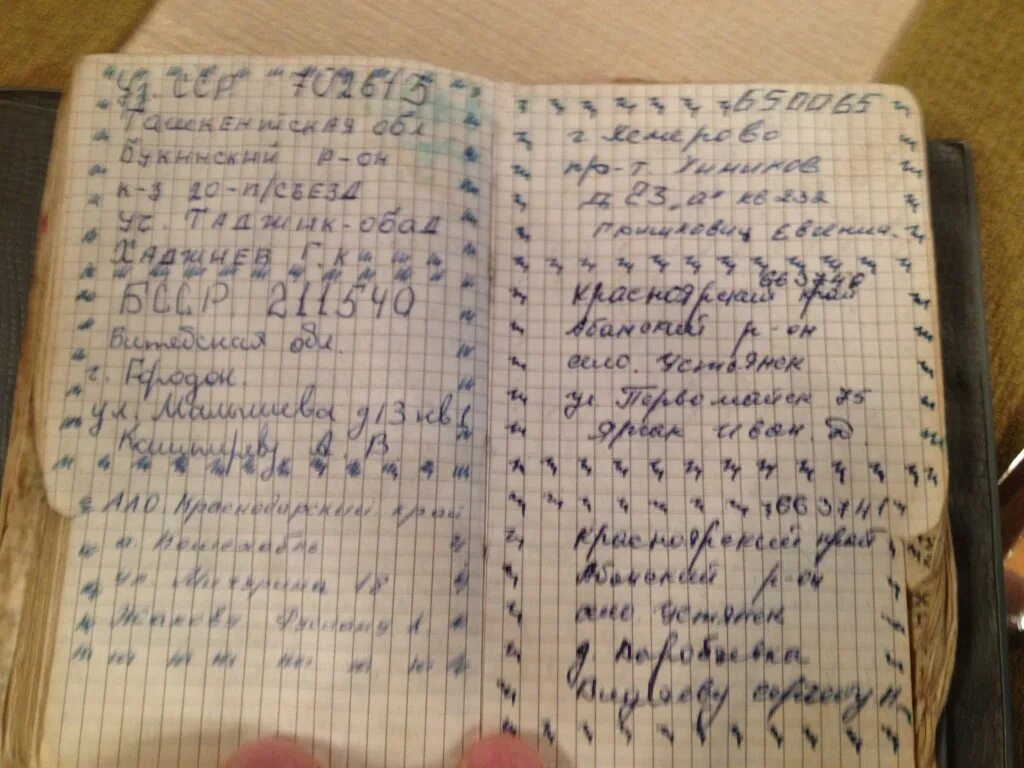 Уз. ССР 702613
Ташкентская обл
Букинский р-он
к-з 20-п/съезд
уч. Таджик-обад
Хаджиев Г. К
БССР 211540
Витебская обл.
г. Городок.
ул. Малышева д 13 кв 1
А. В
ААО. Краснодарский край
ул. Мичурина 18
Жакову Руслану А.
650065
г Кемерово
пр-т. Химиков
д 23 "а" кв 232
Гришкович Евгений.
663740
Красноярский край
Абанский р-он
село. Устьянск
ул Первомайск 75
Иван. Д.
663741
Красноярский край
Абанский р-он
село Устянск
д.
Н.